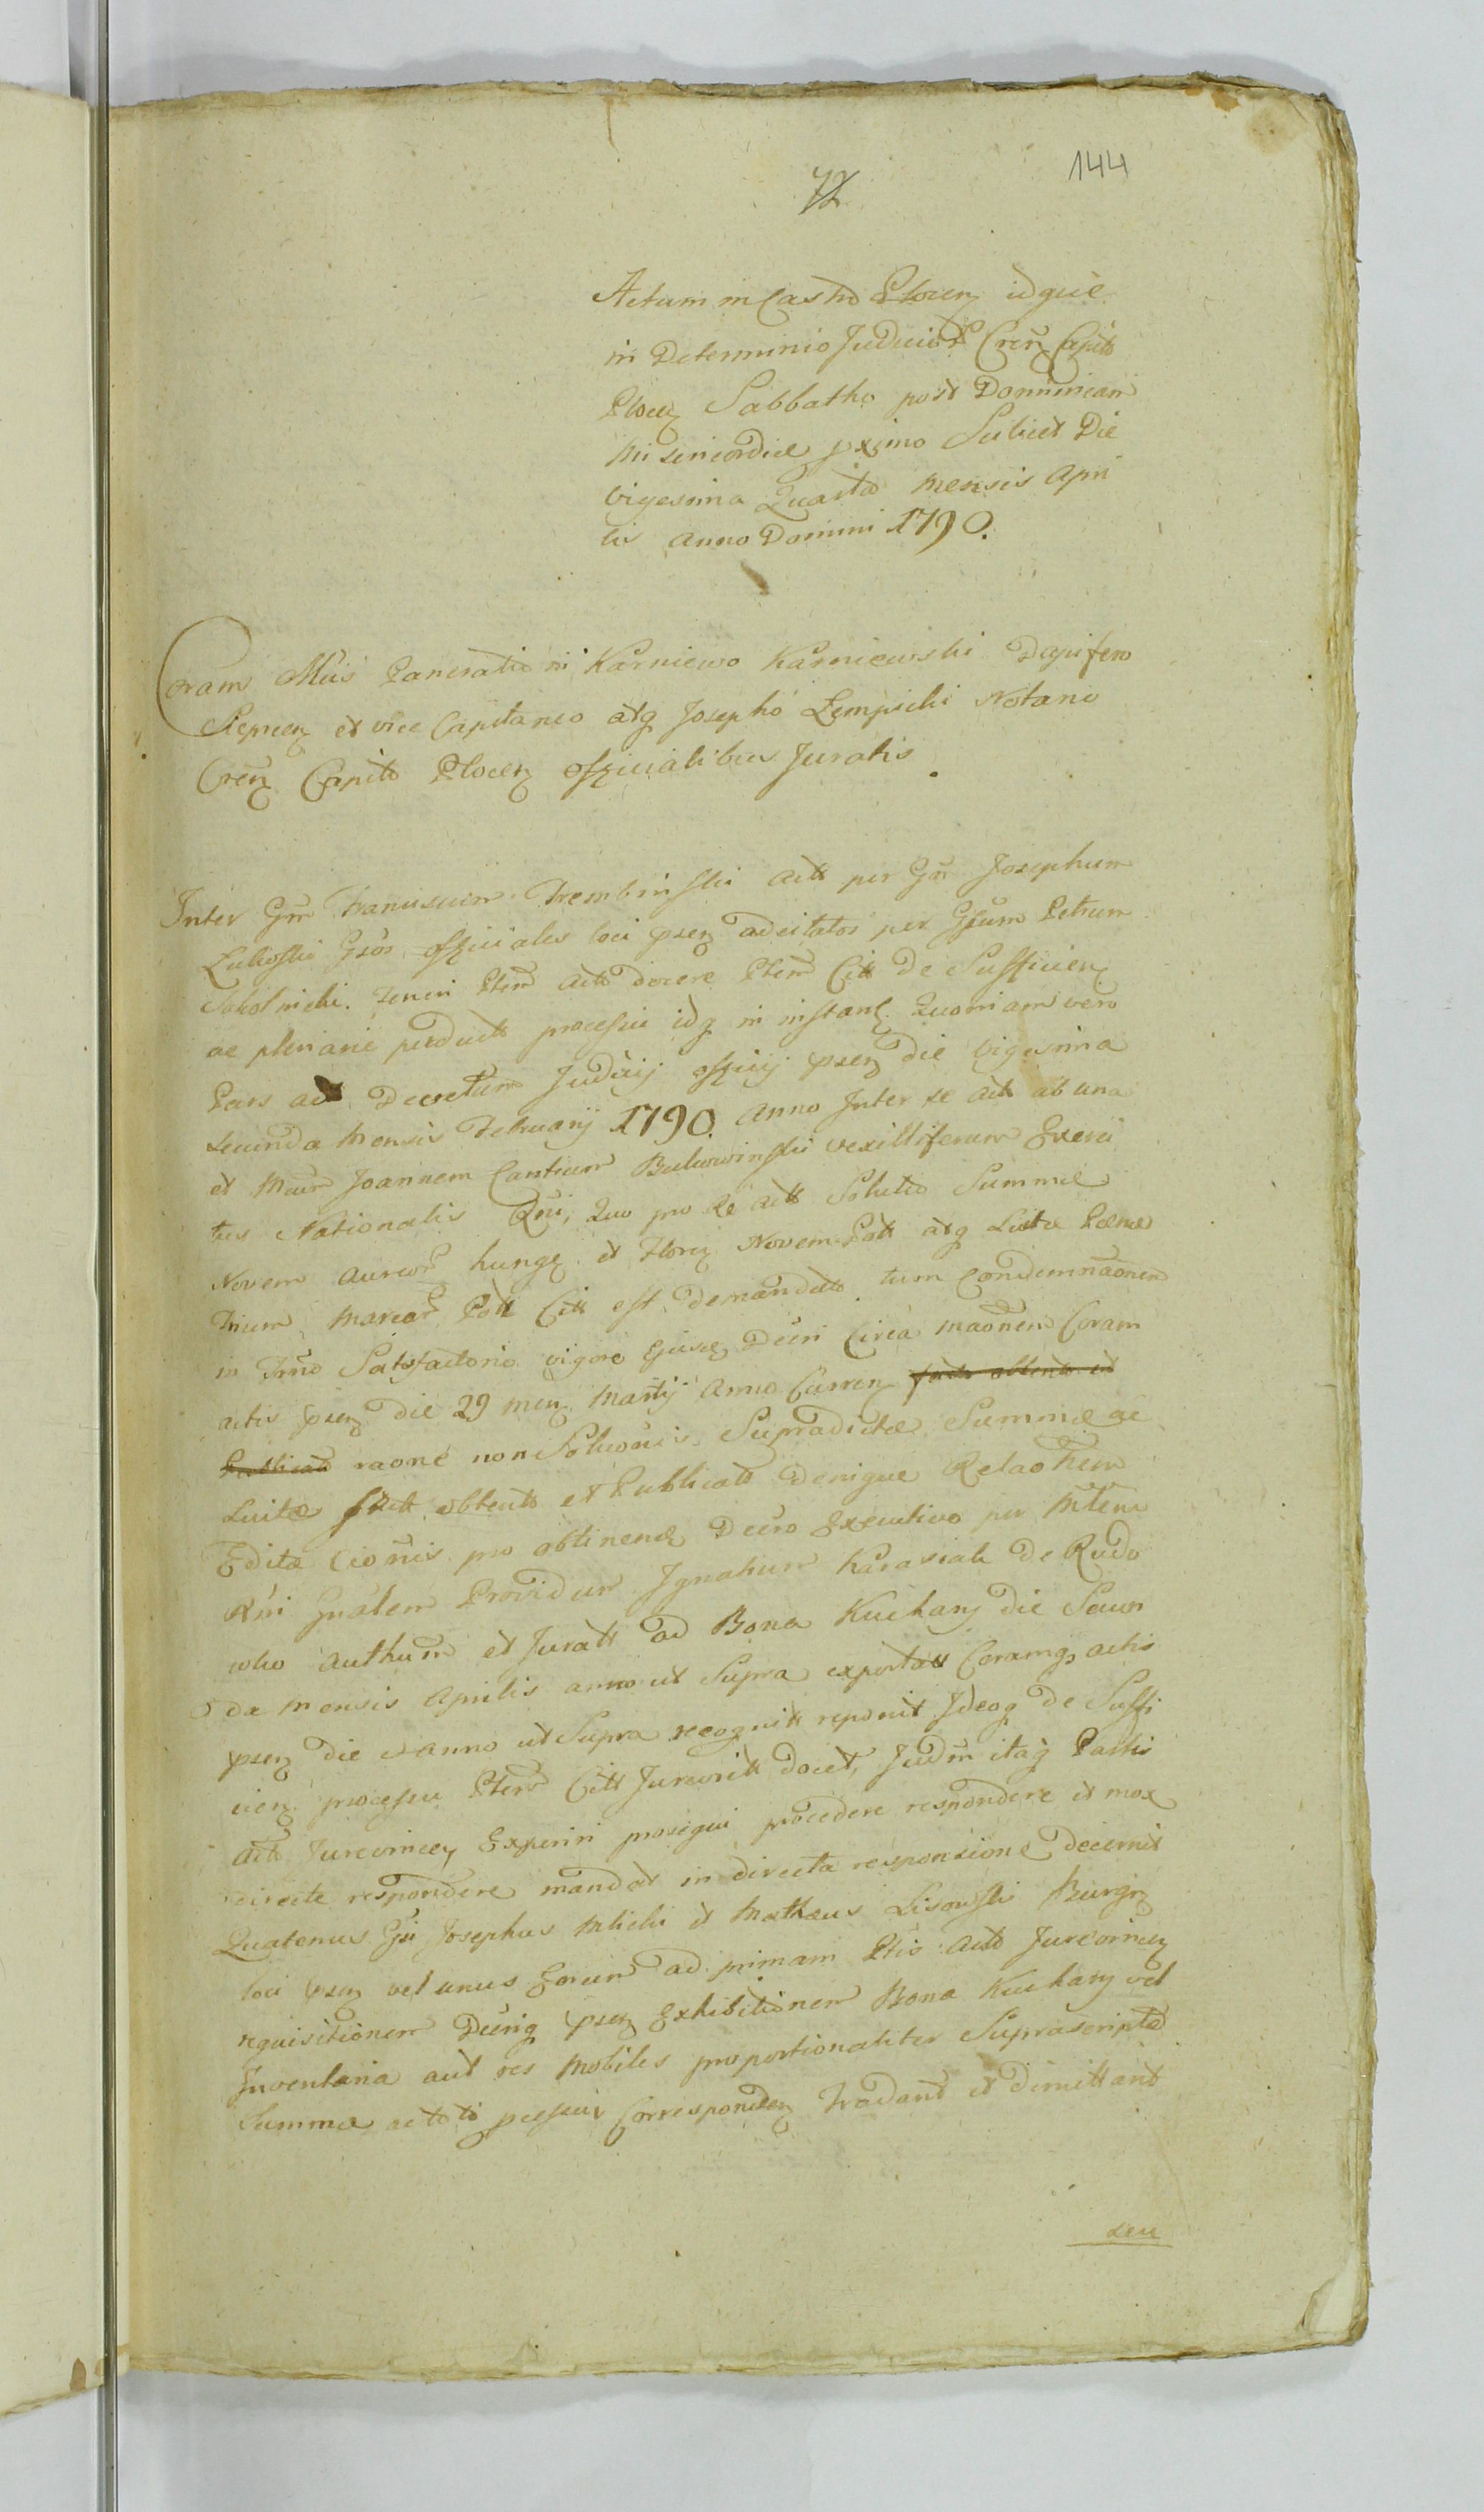 144
72
Actum in Castro Plocen idque
in Determinio Judicior Cren Capit
Plocen Sabbatho post Dominicam
Misericordiæ pximo Scilicet Die
Vigesima Quarta Mensis Apri
lis Anno Domini 1790.
Coram Mcis Pancratio in Karniewo Karniewski Dapifero
et vice Capitaneo atq Josepho Zempicki Notario
Cren Capit Plocen Officialibus Juratis
Inter Gm Franciscum Trembinski Actt per Gm Josephum
officiales loci psen adcitatos per Gsum Petrum
Sokolnicki. Teneri Ptem Actt docere Ptem Citt De Sufficien
ac plenarie perduct processu idq in instan. Quoniam vero
Pars act Decretum Judicij officij psen die vigesima
secunda Mensis Februarij 1790. Anno Inter se Actt ab una
et Mcum Joannem Cantium Bukowinski vexilliferum Exerci
tus Nationalis Rni, Quo pro Re Actt Solutio Summæ
Novem aureor hunge. et Floren Novem Poll atq Luitæ Pænæ
Trium Marcar Poll Citt est demandata tum Condemnaonem
in Trno Satisfactorio vigore Ejusd Decri Circa maonem Coram
actis psen die 29 men Martij Anno Curren factt obtentt et
Publicatt raone non Soluonis Supradictæ Summæ ac
Luitæ factt obtentt et Publicatt denique Relaonem
Editæ Cionis pro obtinend Decro Executivo per Mtem
Rni Gnalem Providum Ignatium Karasiak De Rudo
wko authum et Juratt ad Bona Kuchary die Secun
da mensis Aprilis anno ut Supra exportatt Coramq actis
psen die et anno ut Supra recognitt reponit Ideoq de Suffi
cien processu Ptem Citt Jurevictt docet, Judm itaq Partis
actt Jurevincen Experiri prosequi procedere respondere et mox
directe respondere mandat in directa responsione decernit
Quatenus Gsi Josephus Mlicki et Mathæus Lisowski Burgr
loci psen vel unus Eorum ad primam Ptis Actt Jurevincen
requisitionem Decriq psen Exhibitionem Bona Kuchary vel
Inventaria aut res Mobiles proportionaliter Suprascriptæ
Summæ ac toti pcessui Corresponden Tradant et dimittant
seu